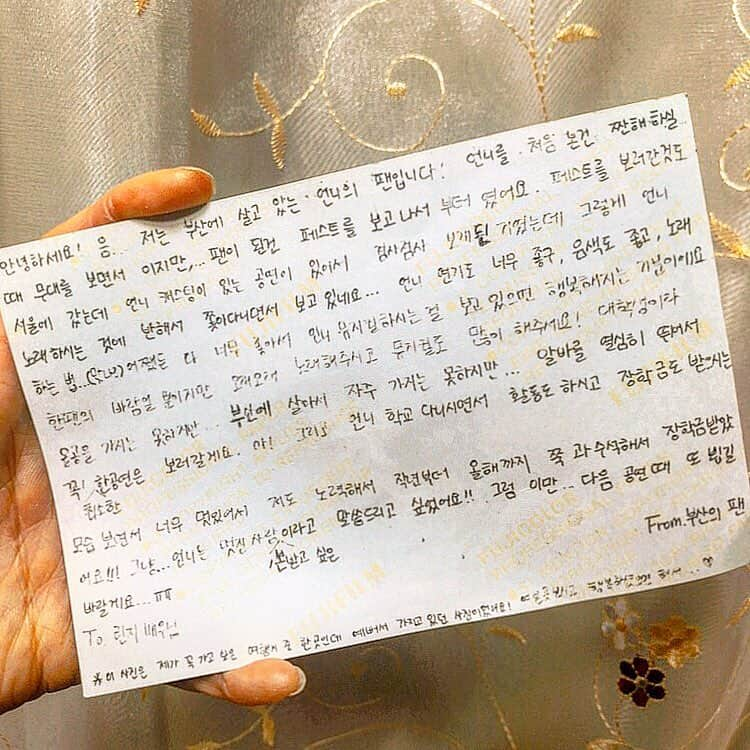 안녕하세요! 음... 저는 부산에 살고 있는 언니의 팬입니다! 언니를 처음 본건 짠해하실
때 무대를 보면서 이지만,... 팬이 된건 페스트를 보고나서 부터 였어요. 페스트를 보러간것도
서울에 갔는데 언니 캐스팅이 있는 공연이 있어서 겸사겸사 보게된 거였는데 그렇게 언니
노래하시는 것에 반해서 쫓아다니면서 보고 있네요... 언니 연기도 너무 좋구, 음색도 좋고, 노래
하는 법... 어쨌든 다 너무 좋아서 언니 움직임하시는걸 보고 있으면 행복해지는 기분이에요
한팬의 바람일 뿐이지만 오래오래 노래해주시고 뮤지컬도 많이 해주세요! 대학생이라
올공을 가지는 못하지만... 부산에 살아서 자주 가지는 못하지만... 알바를 열심히 뛰어서
꼭! 한공연은 보러갈게요. 아! 그리고 언니 학교 다니시면서 활동도 하시고 장학금도 받으시는
최소한
모습 보면서 너무 멋있어서 저도 노력해서 작년부터 올해까지 쭉 과수석해서 장학금받았
어요!!! 그냥... 언니는 멋진 사람이라고 말씀드리고 싶었어요!! 그럼 이만... 다음 공연때 또 뵙길
본받고 싶은
바랄게요... ㅠㅠ
From.부산의 팬
To. 린지 배우님
※이 사진은 제가 꼭 가고 싶은 여행지 중 한곳인데 예뻐서 가지고 있던 사진이었어요!